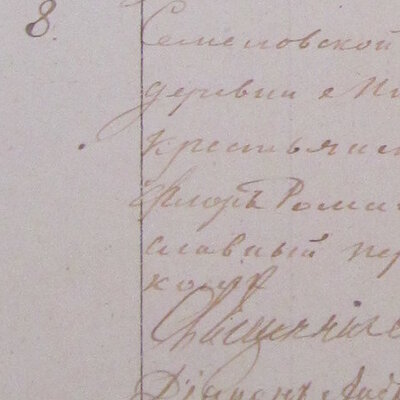 8.
Семеновской
деревни
крестьянин
Флоръ Рома
славный пер
ком
Священник
Діаконъ